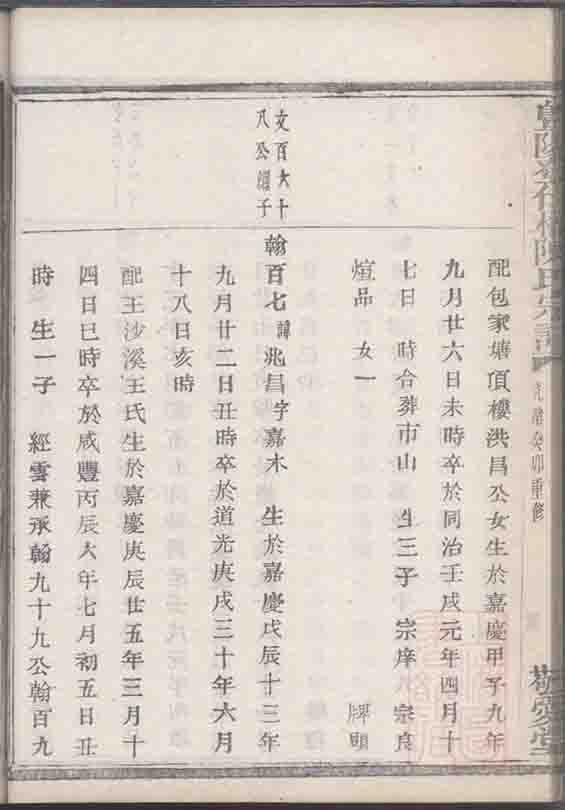 陳氏宗譜
光緒癸卯重修
敬愛堂
配包家塘頂樓洪昌公女生於嘉慶甲子九年
九月廿六日未時卒於同治壬戌元年四月十
七日　時合葬市山　生三子　宗庠　宗良　牌頭
煊品　女一
文百六十
八公　子
翰百七諱兆昌字嘉木　生於嘉慶戊辰十三年
九月廿二日丑時卒於道光庚戌三十年六月
十八日亥時
配王沙溪王氏生於嘉慶庚辰廿五年三月十
四日巳時卒於咸豐丙辰六年七月初五日丑
時　生一子　經雲兼承翰九十九公翰百九